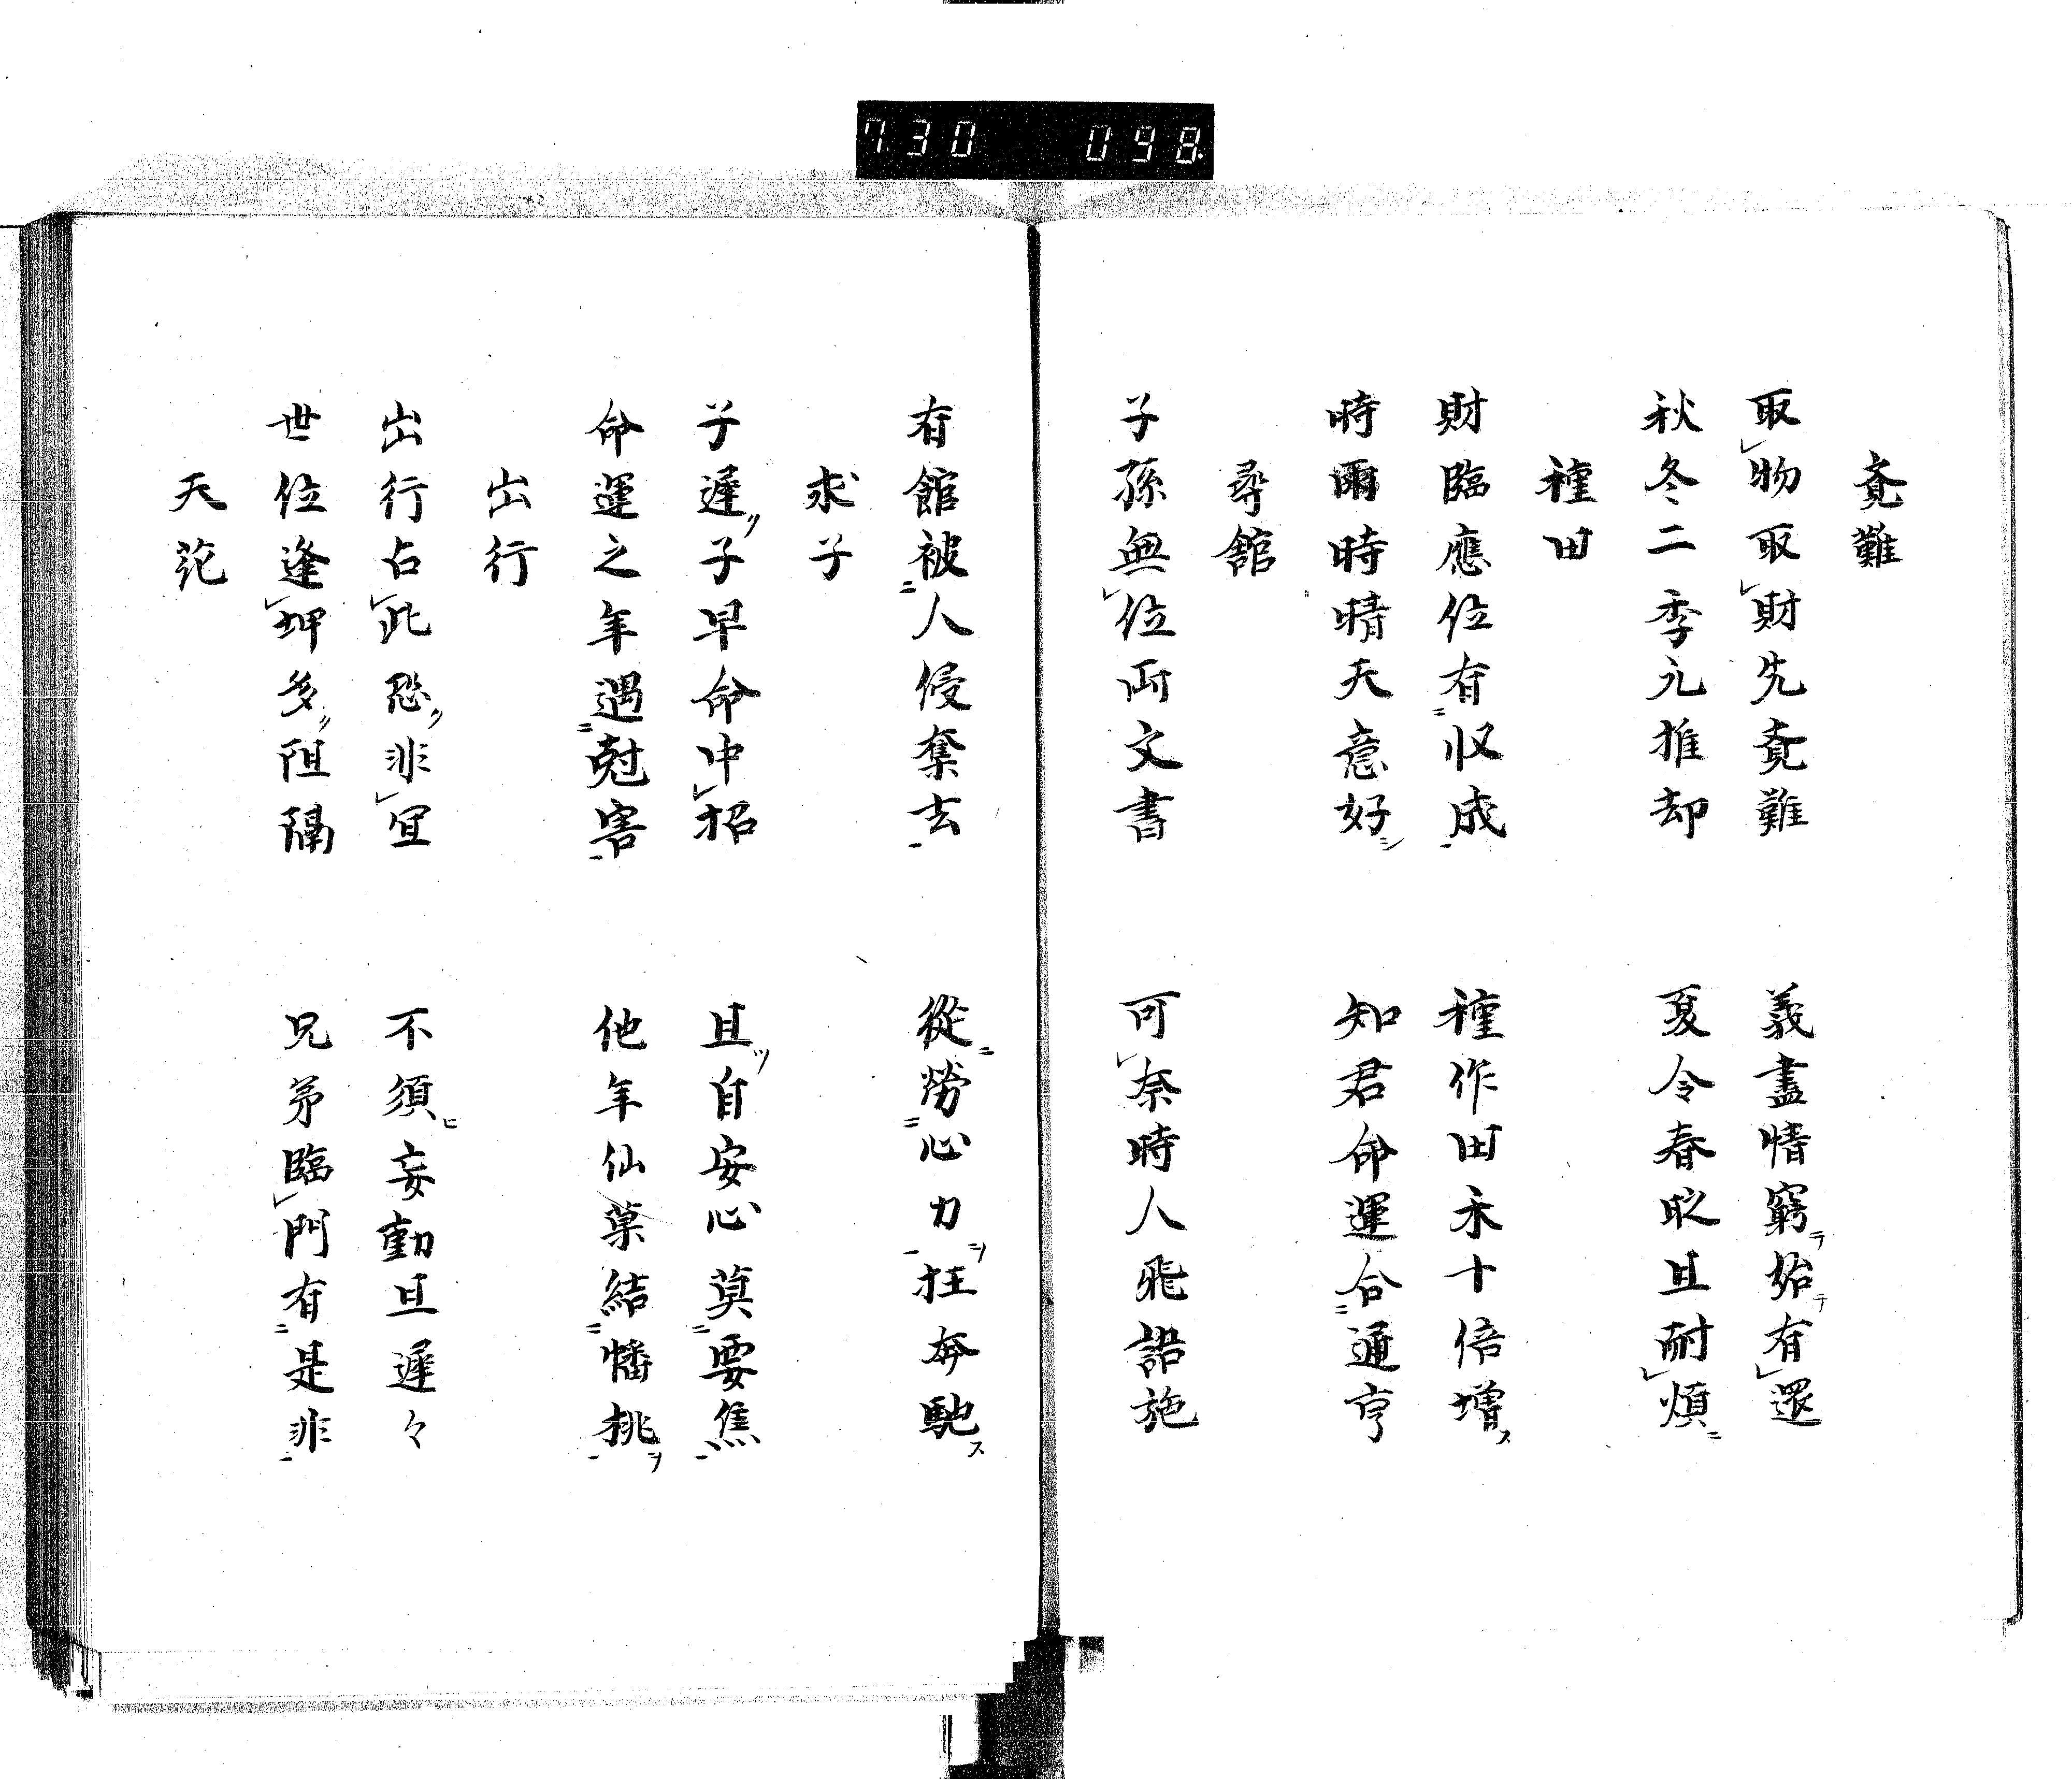 730 098
覔難
取物取財先覔難 義盡情窮始有還
秋冬二季元推却 夏令春且耐煩
種田
財臨應位有収成 種作田禾十倍増
時爾時晴天意好 知君命運合通亨
尋館
子孫無位両文書 可奈時人飛語施
有館被人侵奪去 從勞心力枉奔馳
求子
子遲子早命中招 且自安心莫要焦
命運之年遇尅害 他年仙菓結幡挑
出行
出行占此恐非宜 不須妄動且遲々
世位逢坤多阻隔 兄弟臨門有是非
天花